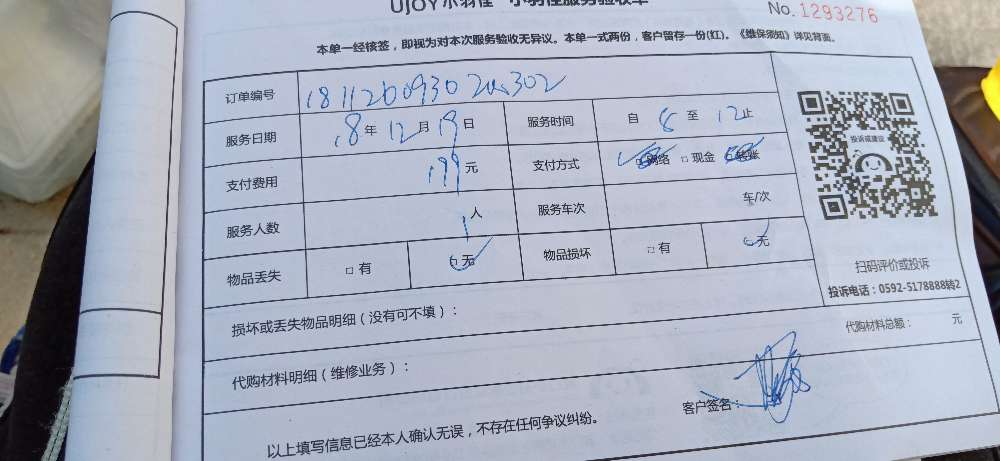 UJOY小羽佳 小羽佳服务验收单
No.1293276
本单一经核签，即视为对本次服务验收无异议。本单一式两份，客户留存一份(红)。《维保须知》详见背面。
订单编号
服务日期 18年12月19日 服务时间 自 8 至 12止
支付费用 199元 支付方式 □网络 □现金 □转账
服务人数 1人 服务车次 车/次
物品丢失 □有 □无 物品损坏 □有 □无
投诉或建议
扫码评价或投诉
投诉电话：0592-5178888转2
损坏或丢失物品明细（没有可不填）：
代购材料总额： 元
代购材料明细（维修业务）：
客户签名：
以上填写信息已经本人确认无误，不存在任何争议纠纷。